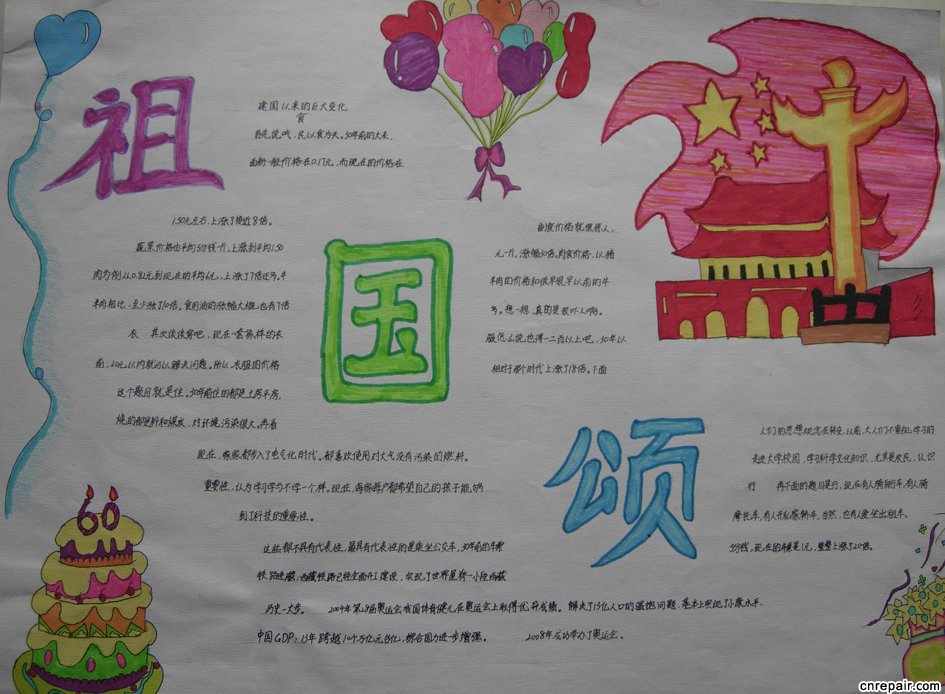 祖
国
颂
建国以来的巨大变化
食
首先说吃,民以食为天。30年前的大米、
面粉一般价格在0.17元,而现在的价格在
1.50元左右,上涨了接近8倍。
蔬菜价格由平均5分钱一斤,上涨到平均1.50
元一斤,涨幅30倍。肉食价格,以猪
肉为例从0.82元到现在的平均6元,上涨了7倍还多。牛
羊肉的价格和很早很早以前的牛
羊肉相比,至少涨了10倍。食用油的涨幅大概也有7倍
多。想一想,真的是很吓人啊。
衣 其次谈谈穿吧,现在一套像样的衣
服怎么说也得一二百以上吧,30年以
前,20元以内就可以解决问题。所以,衣服的价格
相对于那个时代上涨了18倍。下面
这个题目就是住。30年前住的都是土房平房,
烧的都是料和煤炭,对环境污染很大。再看
现在,家家都步入了电气化时代。都喜欢使用对大气没有污染的燃料。
人们的思想观念在转变,以前,大人们不重视学习的
重要性,认为学习学与不学一个样。现在,每家每户都希望自己的孩子能够
走进大学校园,学习科学文化知识,尤其是农民,认识
到了科技的重要性。
行 再下面的题目是行,现在有人骑自行车,有人骑
摩托车,有人开私家轿车,当然,也有人要坐出租车。
这些都不具有代表性,最具有代表性的是乘坐公交车,30年前的车票
5分钱,现在的车票是1元,整整上涨了20倍。
铁路进藏,西藏铁路已经全面开工建设,实现了世界屋脊一小段西藏
历史一大步。 2004年第28届奥运会我国体育健儿在奥运会上取得优异成绩。 解决了13亿人口的温饱问题,基本上实现了小康水平.
中国GDP:13年跨越 综合国力进一步增强。 2008年成功举办了奥运会。
60
cnrepair.com